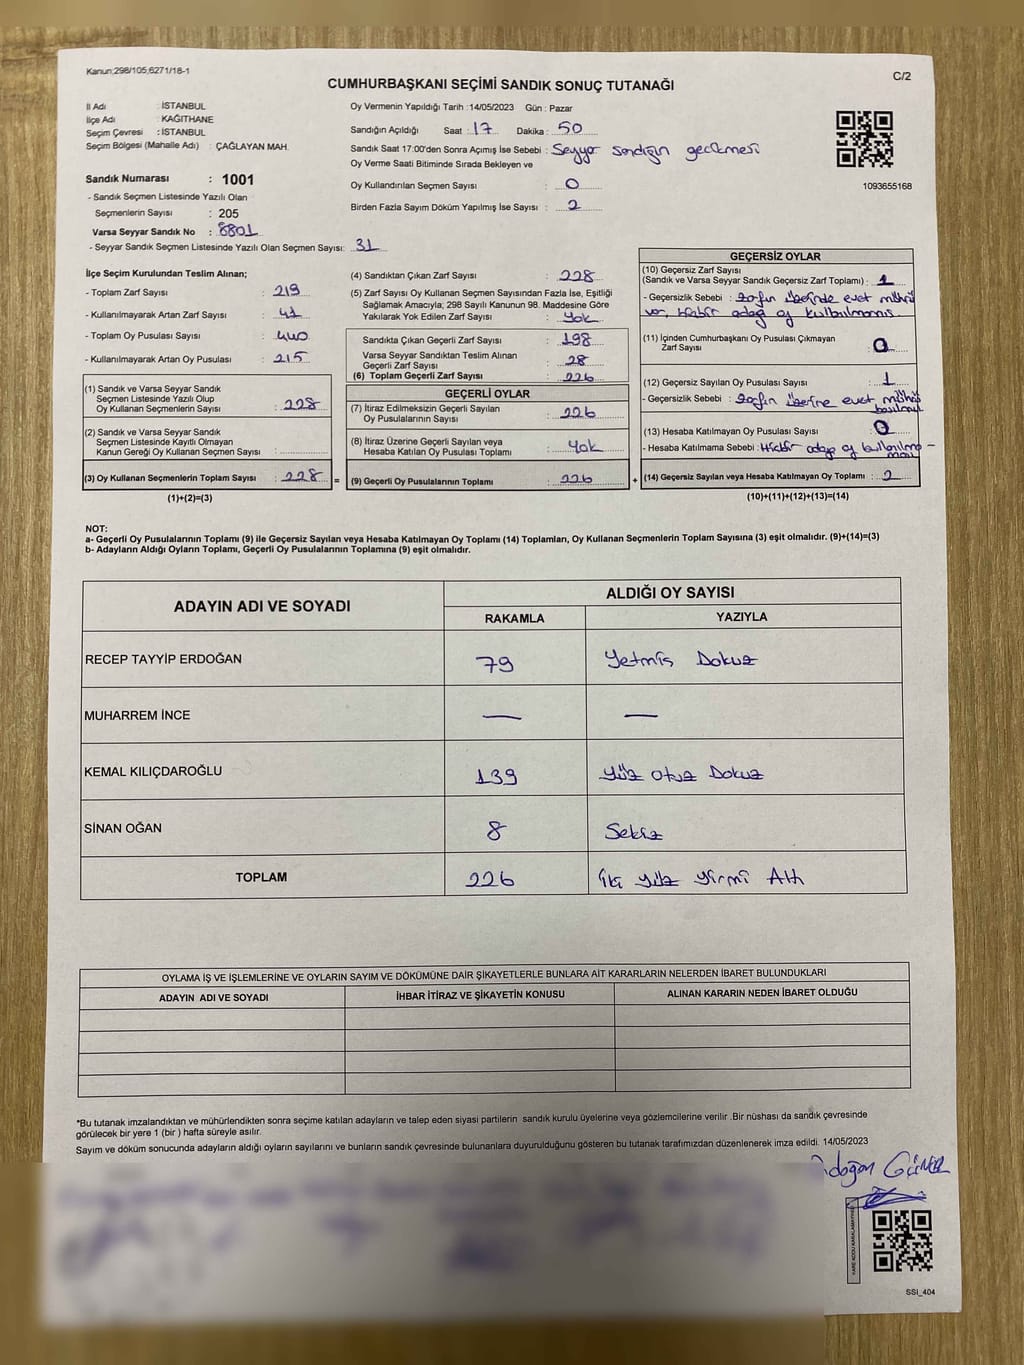 Kanun;298/105,6271/18-1
C/2
CUMHURBAŞKANI SEÇİMİ SANDIK SONUÇ TUTANAĞI
İl Adı : İSTANBUL
İlçe Adı : KAĞITHANE
Seçim Çevresi : İSTANBUL
Seçim Bölgesi (Mahalle Adı) : ÇAĞLAYAN MAH.
Sandık Numarası : 1001
- Sandık Seçmen Listesinde Yazılı Olan
Seçmenlerin Sayısı : 205
Varsa Seyyar Sandık No : 8801
- Seyyar Sandık Seçmen Listesinde Yazılı Olan Seçmen Sayısı: 31
Oy Vermenin Yapıldığı Tarih :14/05/2023 Gün : Pazar
Sandığın Açıldığı Saat : 17 Dakika : 50
Sandık Saat 17:00'den Sonra Açımış İse Sebebi : Seyyar sandığın gecikmesi
Oy Verme Saati Bitiminde Sırada Bekleyen ve
Oy Kullandırılan Seçmen Sayısı : 0
Birden Fazla Sayım Döküm Yapılmış İse Sayısı : 2
1093655168
İlçe Seçim Kurulundan Teslim Alınan;
- Toplam Zarf Sayısı : 219
- Kullanılmayarak Artan Zarf Sayısı : 41
- Toplam Oy Pusulası Sayısı : 440
- Kullanılmayarak Artan Oy Pusulası : 215
(1) Sandık ve Varsa Seyyar Sandık
Seçmen Listesinde Yazılı Olup
Oy Kullanan Seçmenlerin Sayısı : 228
(2) Sandık ve Varsa Seyyar Sandık
Seçmen Listesinde Kayıtlı Olmayan
Kanun Gereği Oy Kullanan Seçmen Sayısı :
(3) Oy Kullanan Seçmenlerin Toplam Sayısı : 228 =
(1)+(2)=(3)
(4) Sandıktan Çıkan Zarf Sayısı : 228
(5) Zarf Sayısı Oy Kullanan Seçmen Sayısından Fazla İse, Eşitliği
Sağlamak Amacıyla; 298 Sayılı Kanunun 98. Maddesine Göre
Yakılarak Yok Edilen Zarf Sayısı : Yok
Sandıkta Çıkan Geçerli Zarf Sayısı : 198
Varsa Seyyar Sandıktan Teslim Alınan
Geçerli Zarf Sayısı : 28
(6) Toplam Geçerli Zarf Sayısı : 226
GEÇERLİ OYLAR
(7) İtiraz Edilmeksizin Geçerli Sayılan
Oy Pusulalarının Sayısı : 226
(8) İtiraz Üzerine Geçerli Sayılan veya
Hesaba Katılan Oy Pusulası Toplamı : Yok
(9) Geçerli Oy Pusulalarının Toplamı : 226 +
GEÇERSİZ OYLAR
(10) Geçersiz Zarf Sayısı
(Sandık ve Varsa Seyyar Sandık Geçersiz Zarf Toplamı) : 1
- Geçersizlik Sebebi : Zarfın üzerinde evet mührü
var, Hiçbir adaya oy kullanılmamış.
(11) İçinden Cumhurbaşkanı Oy Pusulası Çıkmayan
Zarf Sayısı : 0
(12) Geçersiz Sayılan Oy Pusulası Sayısı : 1
- Geçersizlik Sebebi : Zarfın üzerine evet mührü
(13) Hesaba Katılmayan Oy Pusulası Sayısı : 0
- Hesaba Katılmama Sebebi : Hiçbir adaya oy kullanılma-
(14) Geçersiz Sayılan veya Hesaba Katılmayan Oy Toplamı : 2
(10)+(11)+(12)+(13)=(14)
NOT:
a- Geçerli Oy Pusulalarının Toplamı (9) ile Geçersiz Sayılan veya Hesaba Katılmayan Oy Toplamı (14) Toplamları, Oy Kullanan Seçmenlerin Toplam Sayısına (3) eşit olmalıdır. (9)+(14)=(3)
b- Adayların Aldığı Oyların Toplamı, Geçerli Oy Pusulalarının Toplamına (9) eşit olmalıdır.
ADAYIN ADI VE SOYADI
ALDIĞI OY SAYISI
RAKAMLA YAZIYLA
RECEP TAYYİP ERDOĞAN 79 Yetmiş Dokuz
MUHARREM İNCE — —
KEMAL KILIÇDAROĞLU 139 Yüz Otuz Dokuz
SİNAN OĞAN 8 Sekiz
TOPLAM 226 İki Yüz Yirmi Altı
OYLAMA İŞ VE İŞLEMLERİNE VE OYLARIN SAYIM VE DÖKÜMÜNE DAİR ŞİKAYETLERLE BUNLARA AİT KARARLARIN NELERDEN İBARET BULUNDUKLARI
ADAYIN ADI VE SOYADI İHBAR İTİRAZ VE ŞİKAYETİN KONUSU ALINAN KARARIN NEDEN İBARET OLDUĞU
*Bu tutanak imzalandıktan ve mühürlendikten sonra seçime katılan adayların ve talep eden siyasi partilerin sandık kurulu üyelerine veya gözlemcilerine verilir .Bir nüshası da sandık çevresinde
görülecek bir yere 1 (bir ) hafta süreyle asılır.
Sayım ve döküm sonucunda adayların aldığı oyların sayılarını ve bunların sandık çevresinde bulunanlara duyurulduğunu gösteren bu tutanak tarafımızdan düzenlenerek imza edildi. 14/05/2023
SSİ_404